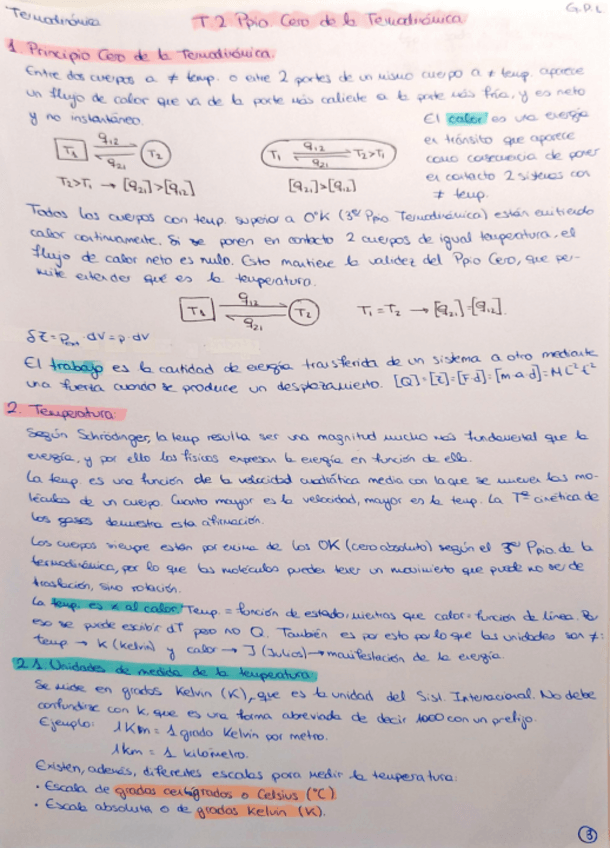 Termodinámica
T 2. Ppio. Cero de la Termodinámica
G.P.L
1. Principio Cero de la Termodinámica.
Entre dos cuerpos a ≠ temp. o entre 2 partes de un mismo cuerpo a ≠ temp. aparece
un flujo de calor que va de la parte más caliente a la parte más fría, y es neto
y no instantáneo.
El calor es una energía
en tránsito que aparece
como consecuencia de poner
en contacto 2 sistemas con
≠ temp.
T₁ q₁₂ q₂₁ T₂
T₁ q₁₂ q₂₁ T₂>T₁
T₂>T₁ → [q₂₁]>[q₁₂]
[q₂₁]>[q₁₂]
Todos los cuerpos con temp. superior a 0ºK (3er Ppio Termodinámica) están emitiendo
calor continuamente. Si se ponen en contacto 2 cuerpos de igual temperatura, el
flujo de calor neto es nulo. Esto mantiene la validez del Ppio Cero, que per-
mite entender qué es la temperatura.
T₁ q₁₂ q₂₁ T₂
T₁=T₂ → [q₂₁]=[q₁₂].
δτ=Pext·dV=p·dV
El trabajo es la cantidad de energía transferida de un sistema a otro mediante
una fuerza cuando se produce un desplazamiento. [Q]=[τ]=[F·d]=[m·a·d]=ML²t⁻²
2. Temperatura:
Según Schrödinger, la temp resulta ser una magnitud mucho más fundamental que la
energía, y por ello los físicos expresan la energía en función de ella.
La temp. es una función de la velocidad cuadrática media con la que se mueven las mo-
léculas de un cuerpo. Cuanto mayor es la velocidad, mayor es la temp. La Tª cinética de
los gases demuestra esta afirmación.
Los cuerpos siempre están por encima de los 0K (cero absoluto) según el 3er Ppio. de la
termodinámica, por lo que las moléculas pueden tener un movimiento que puede no ser de
traslación, sino rotación.
La temp. es ≠ al calor: Temp. = función de estado, mientras que calor = función de línea. Por
eso se puede escribir dT pero no Q. También es por esto por lo que las unidades son ≠:
temp → K (Kelvin) y calor → J (Julios) → manifestación de la energía.
2.1. Unidades de medida de la temperatura:
Se mide en grados Kelvin (K), que es la unidad del Sist. Internacional. No debe
confundirse con k, que es una forma abreviada de decir 1000 con un prefijo.
Ejemplo: 1Km = 1 grado Kelvin por metro.
1km = 1 kilómetro.
Existen, además, diferentes escalas para medir la temperatura:
· Escala de grados centígrados o Celsius (ºC).
· Escala absoluta o de grados Kelvin (K).
3